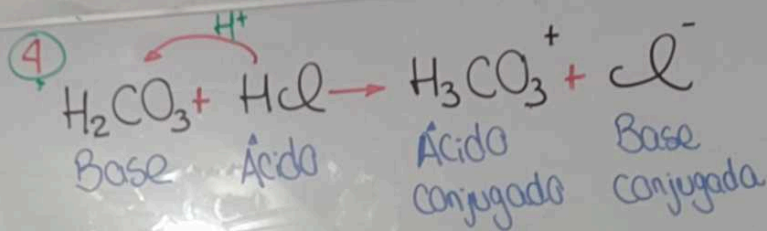 H⁺
4
H₂CO₃ + HCl → H₃CO₃⁺ + Cl⁻
Base Ácido Ácido Base
conjugado conjugada